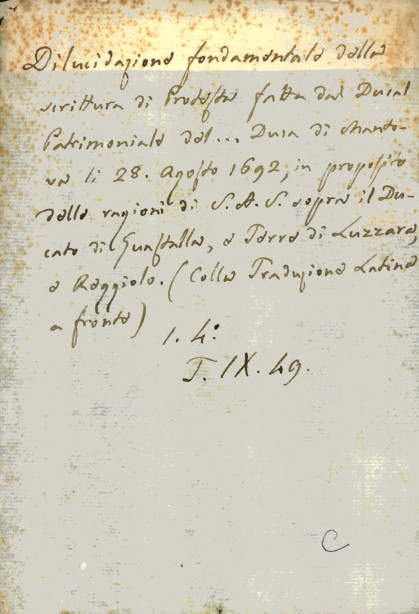 Dilucidazione fondamentale della
scrittura di Protesta fatta dal Ducal
Patrimoniale del... Duca di Manto-
va li 28. Agosto 1692, in proposito
delle ragioni di S. A. S. sopra il Du-
cato di Guastalla, e Terre di Luzzara,
e Reggiolo. (Colla Traduzione Latina
a fronte)
1. 4.º
T. IX. 49.
C